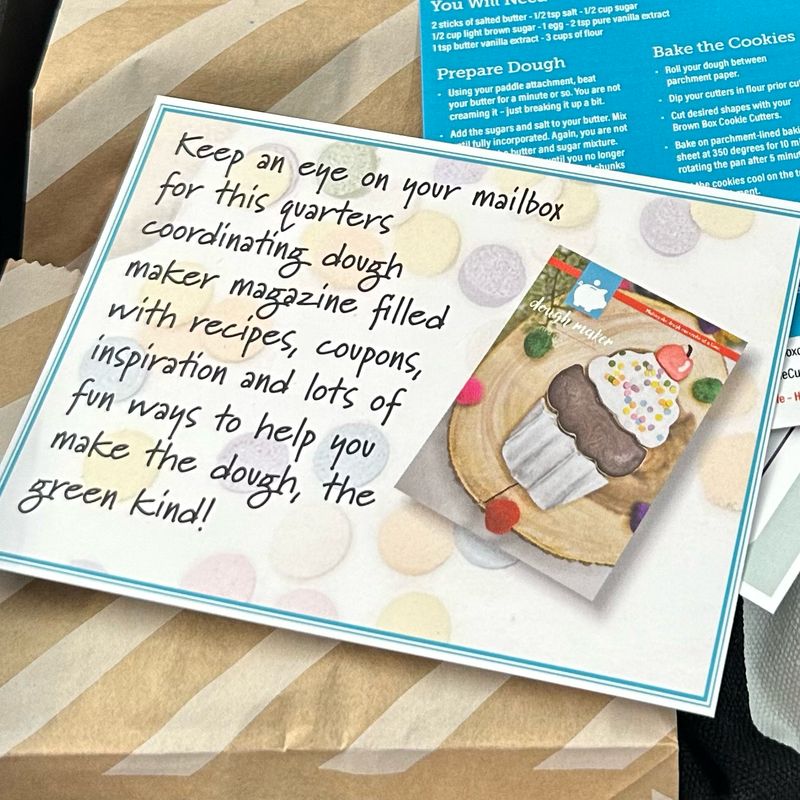 You Will Need
2 sticks of salted butter - 1/2 tsp salt - 1/2 cup sugar
1/2 cup light brown sugar - 1 egg - 2 tsp pure vanilla extract
1 tsp butter vanilla extract - 3 cups of flour
Prepare Dough
Using your paddle attachment, beat
your butter for a minute or so. You are not
creaming it - just breaking it up a bit.
Add the sugars and salt to your butter. Mix
until fully incorporated. Again, you are not
butter and sugar mixture.
until you no longer
chunks
Bake the Cookies
Roll your dough between
parchment paper.
Dip your cutters in flour prior
Cut desired shapes with your
Brown Box Cookie Cutters.
Bake on parchment-lined
sheet at 350 degrees for 10
rotating the pan after 5
the cookies cool on the
Keep an eye on your mailbox
for this quarters
coordinating dough
maker magazine filled
with recipes, coupons,
inspiration and lots of
fun ways to help you
make the dough, the
green kind!
dough maker